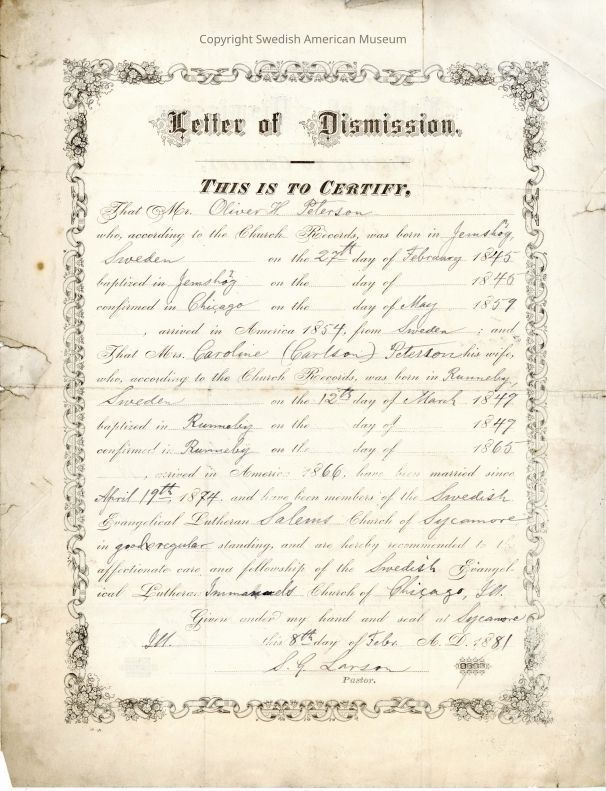 Copyright Swedish American Museum
Letter of Dismission.
THIS IS TO CERTIFY,
That Mr. Oliver H. Peterson
who, according to the Church Records, was born in Jemshög,
Sweden on the 27th day of February 1845
baptized in Jemshög on the day of 1845
confirmed in Chicago on the day of May 1859
, arrived in America 1854, from Sweden ; and
That Mrs. Caroline (Carlson) Peterson his wife,
who, according to the Church Records, was born in Runneby,
Sweden on the 12th day of March 1847
baptized in Runneby on the day of 1847
confirmed in Runneby on the day of 1865
, arrived in America 1866, have been married since
April 19th, 1874, and have been members of the Swedish
Evangelical Lutheran Salems Church of Sycamore
in good & regular standing, and are hereby recommended to the
affectionate care and fellowship of the Swedish Evangel-
ical Lutheran Immanuels Church of Chicago, Ill.
Given under my hand and seal at Sycamore
Ill. this 8th day of Febr. A. D. 1881
S. G. Larson
Pastor.